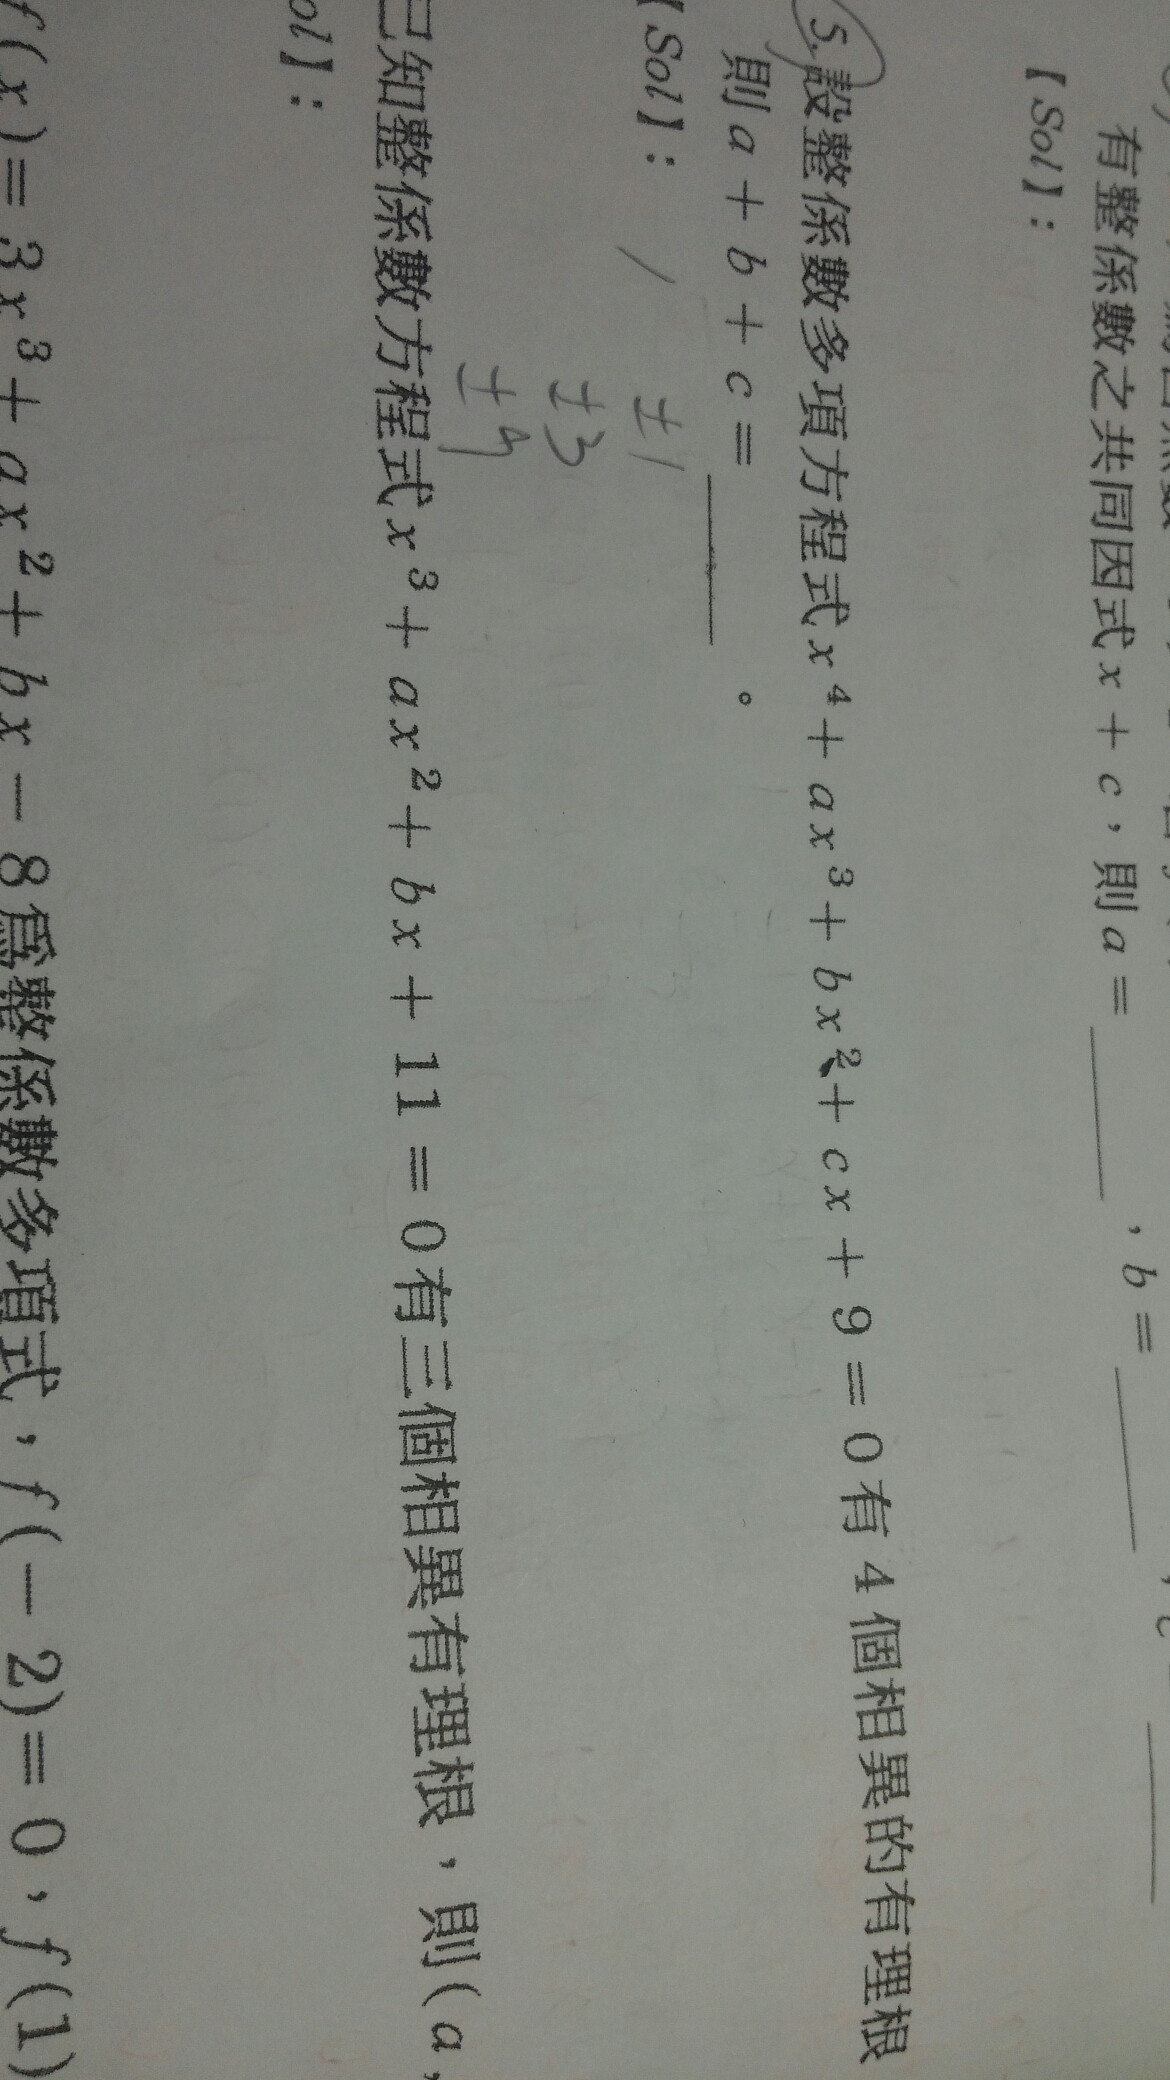 有整係數之共同因式x + c，則a = ＿＿＿，b = ＿＿＿，c
【Sol】：
5.設整係數多項方程式x⁴ + ax³ + bx² + cx + 9 = 0有4個相異的有理根
則a + b + c = ＿＿＿。
【Sol】：
±1
±3
±9
已知整係數方程式x³ + ax² + bx + 11 = 0有三個相異有理根，則(a,
ol】：
f(x) = 3x³ + ax² + bx − 8為整係數多項式，f(−2) = 0，f(1)